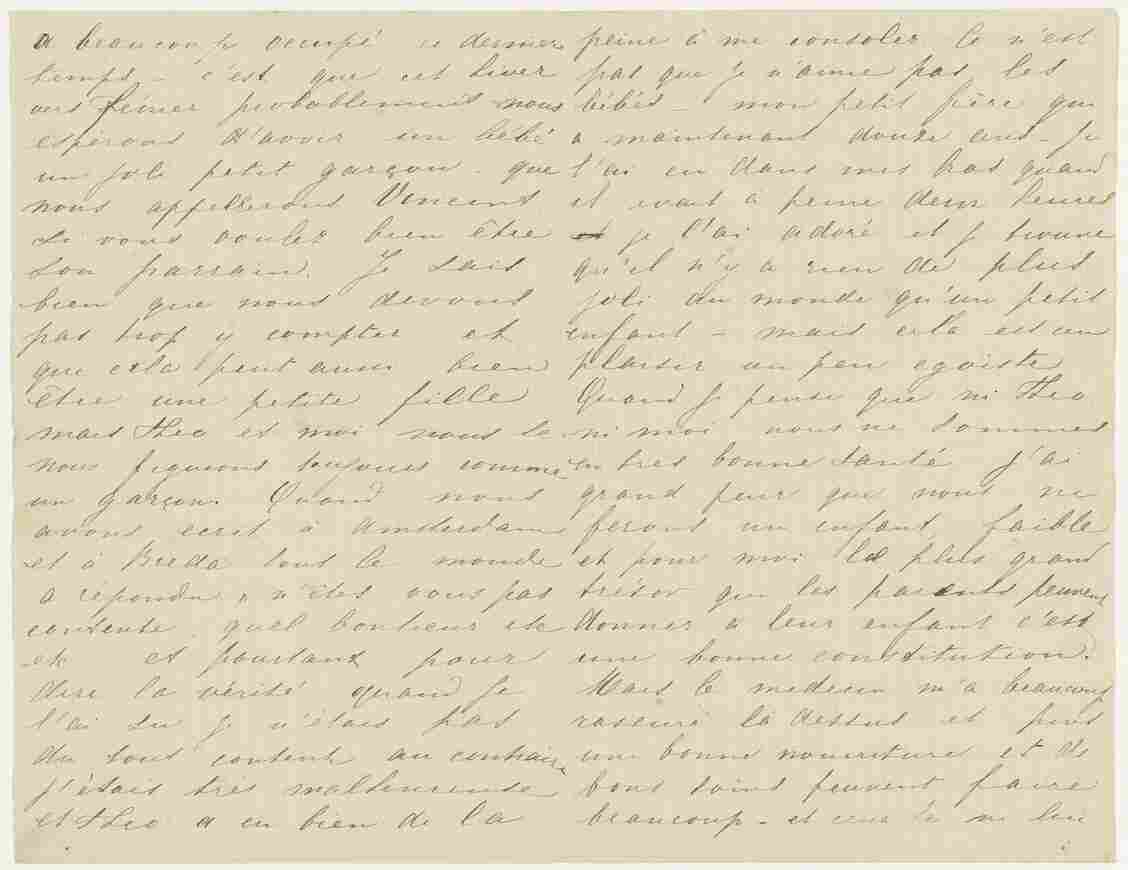 a beaucoup occupé ce dernier
temps – c'est que cet hiver
vers Février probablement nous
espérons d'avoir un bébé
un joli petit garçon – que
nous appellerons Vincent
si vous voulez bien être
son parrain. Je sais
bien que nous devons
pas trop y compter et
que cela peut aussi bien
être une petite fille
mais Theo et moi nous le
nous figurons toujours comme
un garçon. Quand nous
avons ecrit à Amsterdam
et à Breda tous le monde
a répondu, n'êtes vous pas
contente quel bonheur etc
etc et pourtant pour
dire la vérité quand je
l'ai su je n'étais pas
du tout contente au contraire
j'étais très malheureuse
et Theo a eu bien de la
peine à me consoler. Ce n'est
pas que je n'aime pas les
bébés – mon petit frère qui
a maintenant douze ans – je
l'ai eu dans mes bras quand
il avait à peine deux heures
et je l'ai adoré et je trouve
qu'il n'y a rien de plus
joli au monde qu'un petit
enfant – mais cela est un
plaisir un peu egoiste
Quand je pense que ni Theo
ni moi nous ne sommes
en tres bonne santé j'ai
grand peur que nous ne
ferons un enfant faible
et pour moi le plus grand
trésor que les parents peuvent
donner à leur enfant c'est
une bonne constitution.
Mais le medecin m'a beaucoup
rassuré là dessus et puis
une bonne nourriture et de
bons soins peuvent faire
beaucoup – et ceux là ne lui